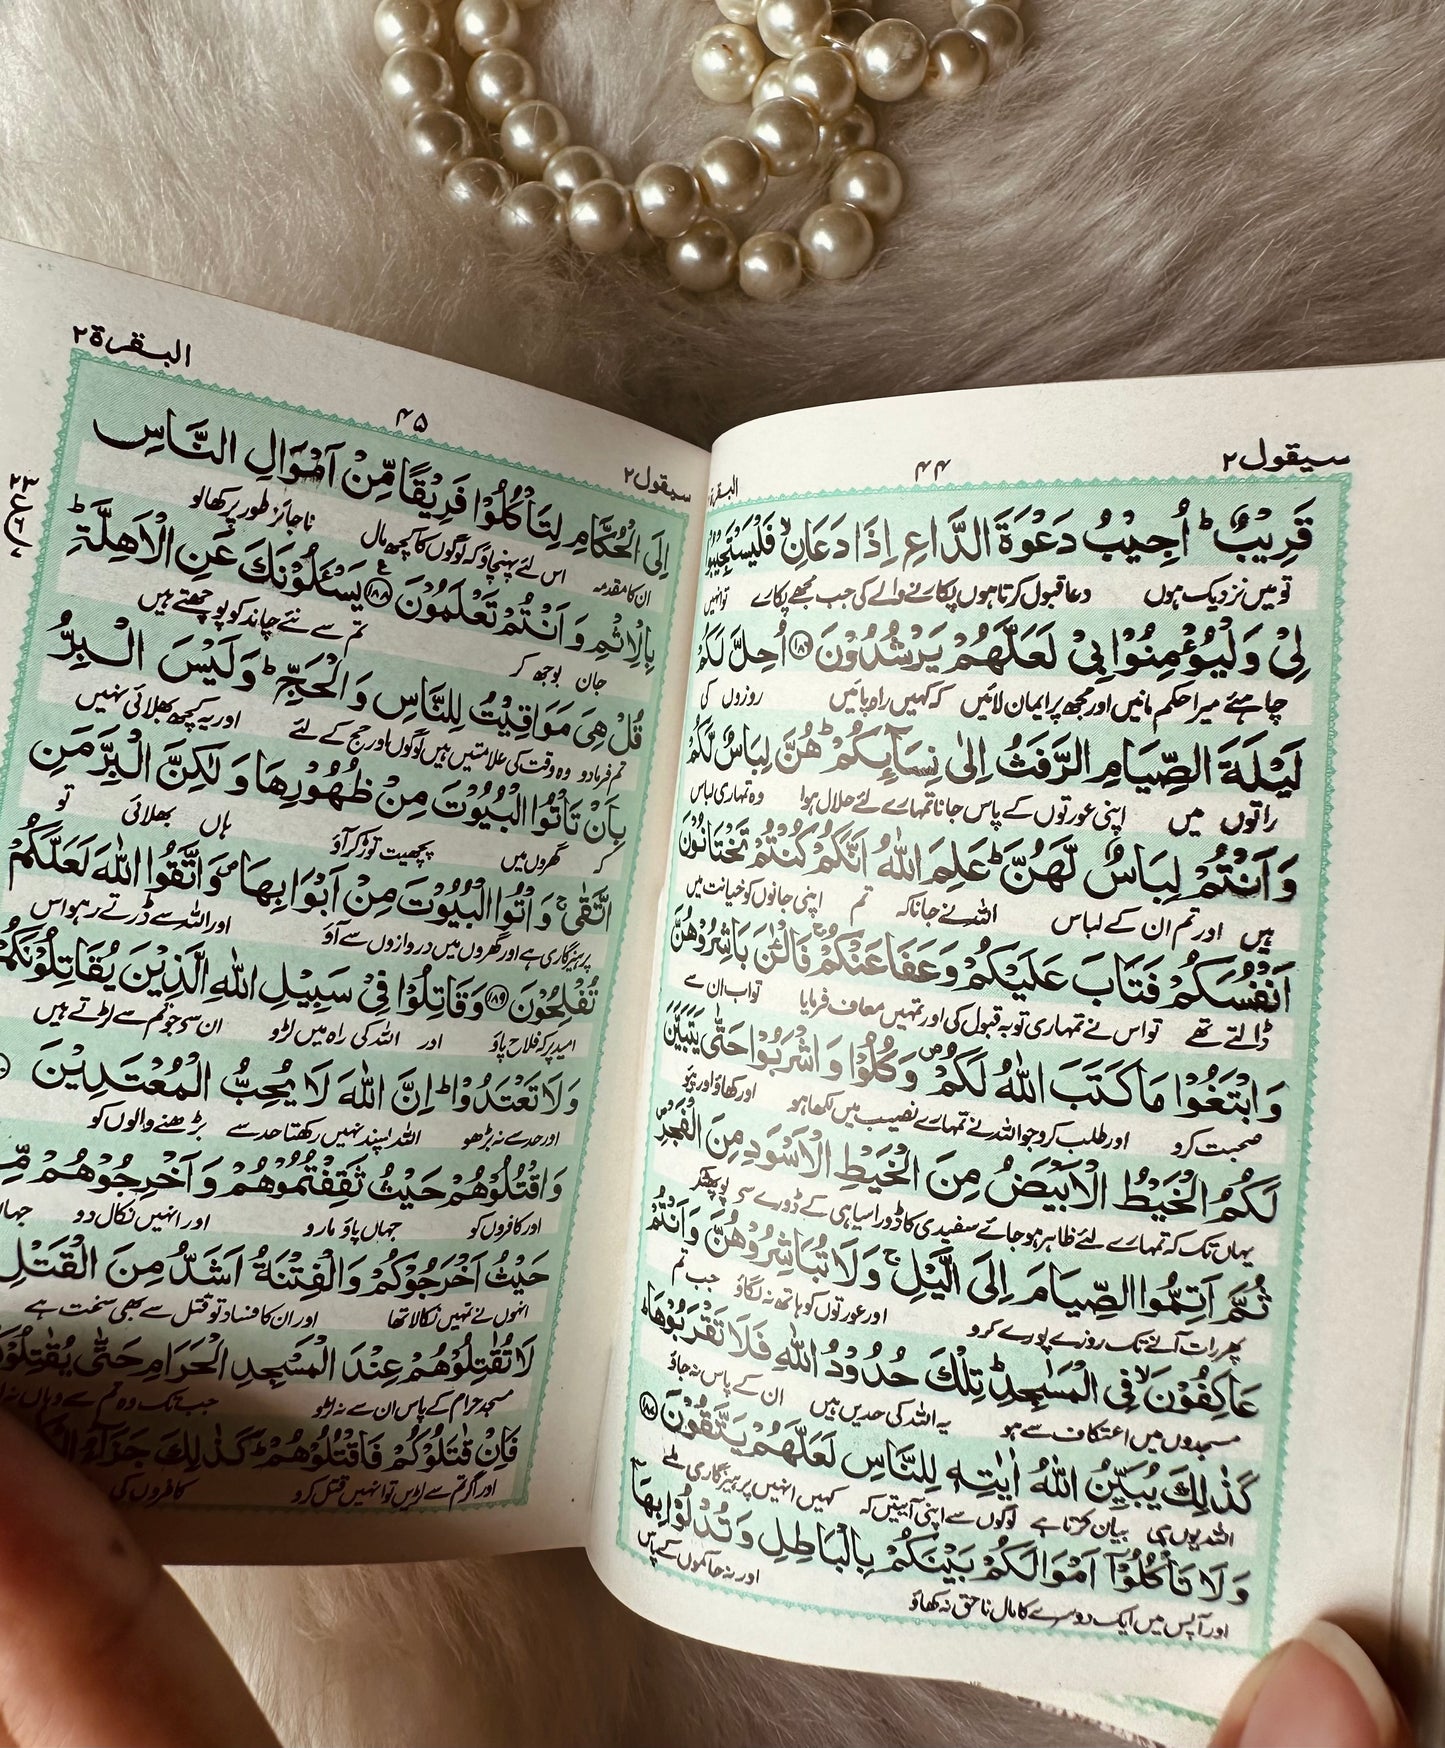 سیقول۲
۴۴
البقرة
قَرِیْبٌ ؕ اُجِیْبُ دَعْوَةَ الدَّاعِ اِذَا دَعَانِ ۙ فَلْیَسْتَجِیْبُوْا
تو میں نزدیک ہوں دعا قبول کرتا ہوں پکارنے والے کی جب مجھے پکارے تو انہیں
لِیْ وَ لْیُؤْمِنُوْا بِیْ لَعَلَّهُمْ یَرْشُدُوْنَ ﴿۱۸۶﴾ اُحِلَّ لَكُمْ
چاہئے میرا حکم مانیں اور مجھ پر ایمان لائیں کہ کہیں راہ پائیں روزوں کی
لَیْلَةَ الصِّیَامِ الرَّفَثُ اِلٰی نِسَآىِٕكُمْ ؕ هُنَّ لِبَاسٌ لَّكُمْ
راتوں میں اپنی عورتوں کے پاس جانا تمہارے لئے حلال ہوا وہ تمہاری لباس
وَ اَنْتُمْ لِبَاسٌ لَّهُنَّ ؕ عَلِمَ اللّٰهُ اَنَّكُمْ كُنْتُمْ تَخْتَانُوْنَ
ہیں اور تم ان کے لباس اللہ نے جانا کہ تم اپنی جانوں کو خیانت میں
اَنْفُسَكُمْ فَتَابَ عَلَیْكُمْ وَ عَفَا عَنْكُمْ ۚ فَالْـٰٔنَ بَاشِرُوْهُنَّ
ڈالتے تھے تو اس نے تمہاری توبہ قبول کی اور تمہیں معاف فرمایا تو اب ان سے
وَ ابْتَغُوْا مَا كَتَبَ اللّٰهُ لَكُمْ ۪ وَ كُلُوْا وَ اشْرَبُوْا حَتّٰی یَتَبَیَّنَ
صحبت کرو اور طلب کرو جو اللہ نے تمہارے نصیب میں لکھا ہو اور کھاؤ اور پیو
لَكُمُ الْخَیْطُ الْاَبْیَضُ مِنَ الْخَیْطِ الْاَسْوَدِ مِنَ الْفَجْرِ ۪
یہاں تک کہ تمہارے لئے ظاہر ہو جائے سفیدی کا ڈورا سیاہی کے ڈورے سے پو پھٹ کر
ثُمَّ اَتِمُّوا الصِّیَامَ اِلَی الَّیْلِ ۚ وَ لَا تُبَاشِرُوْهُنَّ وَ اَنْتُمْ
پھر رات آنے تک روزے پورے کرو اور عورتوں کو ہاتھ نہ لگاؤ جب تم
عَاكِفُوْنَ ۙ فِی الْمَسٰجِدِ ؕ تِلْكَ حُدُوْدُ اللّٰهِ فَلَا تَقْرَبُوْهَا ؕ
مسجدوں میں اعتکاف سے ہو یہ اللہ کی حدیں ہیں ان کے پاس نہ جاؤ
كَذٰلِكَ یُبَیِّنُ اللّٰهُ اٰیٰتِهٖ لِلنَّاسِ لَعَلَّهُمْ یَتَّقُوْنَ ﴿۱۸۷﴾
اللہ یوں ہی بیان کرتا ہے لوگوں سے اپنی آیتیں کہ کہیں انہیں پرہیزگاری ملے
وَ لَا تَاْكُلُوْۤا اَمْوَالَكُمْ بَیْنَكُمْ بِالْبَاطِلِ وَ تُدْلُوْا بِهَاۤ
اور آپس میں ایک دوسرے کا مال ناحق نہ کھاؤ اور نہ حاکموں کے پاس
سیقول۲
۴۵
البقرة۲
اِلَی الْحُكَّامِ لِتَاْكُلُوْا فَرِیْقًا مِّنْ اَمْوَالِ النَّاسِ
ان کا مقدمہ اس لئے پہنچاؤ کہ لوگوں کا کچھ مال ناجائز طور پر کھالو
بِالْاِثْمِ وَ اَنْتُمْ تَعْلَمُوْنَ ﴿۱۸۸﴾ یَسْـَٔلُوْنَكَ عَنِ الْاَهِلَّةِ ؕ
جان بوجھ کر تم سے نئے چاند کو پوچھتے ہیں
قُلْ هِیَ مَوَاقِیْتُ لِلنَّاسِ وَ الْحَجِّ ؕ وَ لَیْسَ الْبِرُّ
تم فرمادو وہ وقت کی علامتیں ہیں لوگوں اور حج کے لئے اور یہ کچھ بھلائی نہیں
بِاَنْ تَاْتُوا الْبُیُوْتَ مِنْ ظُهُوْرِهَا وَ لٰكِنَّ الْبِرَّ مَنِ
کہ گھروں میں پچھیت توڑ کر آؤ ہاں بھلائی تو
اتَّقٰی ۚ وَ اْتُوا الْبُیُوْتَ مِنْ اَبْوَابِهَا ۪ وَ اتَّقُوا اللّٰهَ لَعَلَّكُمْ
پرہیزگاری ہے اور گھروں میں دروازوں سے آؤ اور اللہ سے ڈرتے رہو اس
تُفْلِحُوْنَ ﴿۱۸۹﴾ وَ قَاتِلُوْا فِیْ سَبِیْلِ اللّٰهِ الَّذِیْنَ یُقَاتِلُوْنَكُمْ
امید پر کہ فلاح پاؤ اور اللہ کی راہ میں لڑو ان سے جو تم سے لڑتے ہیں
وَ لَا تَعْتَدُوْا ؕ اِنَّ اللّٰهَ لَا یُحِبُّ الْمُعْتَدِیْنَ
اور حد سے نہ بڑھو اللہ پسند نہیں رکھتا حد سے بڑھنے والوں کو
وَ اقْتُلُوْهُمْ حَیْثُ ثَقِفْتُمُوْهُمْ وَ اَخْرِجُوْهُمْ مِّنْ
اور کافروں کو جہاں پاؤ مارو اور انہیں نکال دو جہاں
حَیْثُ اَخْرَجُوْكُمْ وَ الْفِتْنَةُ اَشَدُّ مِنَ الْقَتْلِ
انہوں نے تمہیں نکالا تھا اور ان کا فساد تو قتل سے بھی سخت ہے
لَا تُقٰتِلُوْهُمْ عِنْدَ الْمَسْجِدِ الْحَرَامِ حَتّٰی یُقٰتِلُوْ
مسجد حرام کے پاس ان سے نہ لڑو جب تک وہ تم سے وہاں نہ
فَاِنْ قٰتَلُوْكُمْ فَاقْتُلُوْهُمْ ؕ كَذٰلِكَ جَزَآءُ
اور اگر تم سے لڑیں تو انہیں قتل کرو کافروں کی